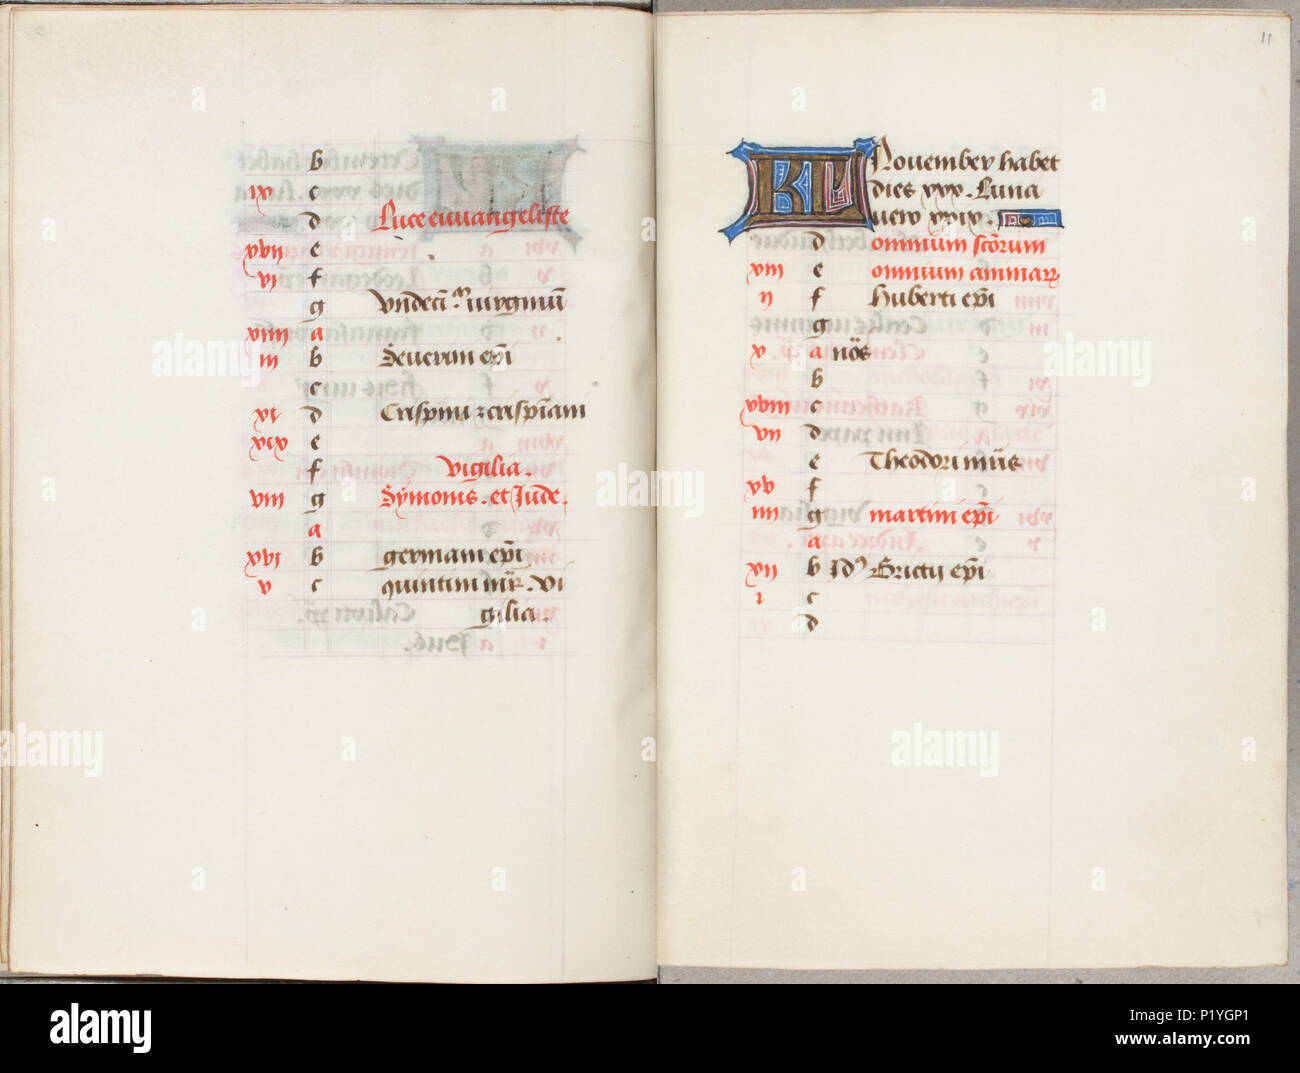 b
ix c
d Luce euuangeliste
xvii e
vi f
g Undecī m uirginū
xiiii a
iii b Seuerini epi
c
xi d Crispini z crispiani
xix e
f vigilia.
viii g Symonis. et Jude.
a
xvi b germani epi
v c quintini mr̄. Vi
gilia.
11
KL November habet
dies xxx. Luna
uero xxix.
d omnium scōrum
xiii e omnium animar
ii f huberti epi
g
x a nōs
b
xviii c
vii d
e Theodori mr̄is
xv f
iiii g martini epi
a
xii b Idꝰ Brictii epi
i c
d
alamy
a
alamy
alamy
a
alamy
www.alamy.com
Image ID: P1YGP1